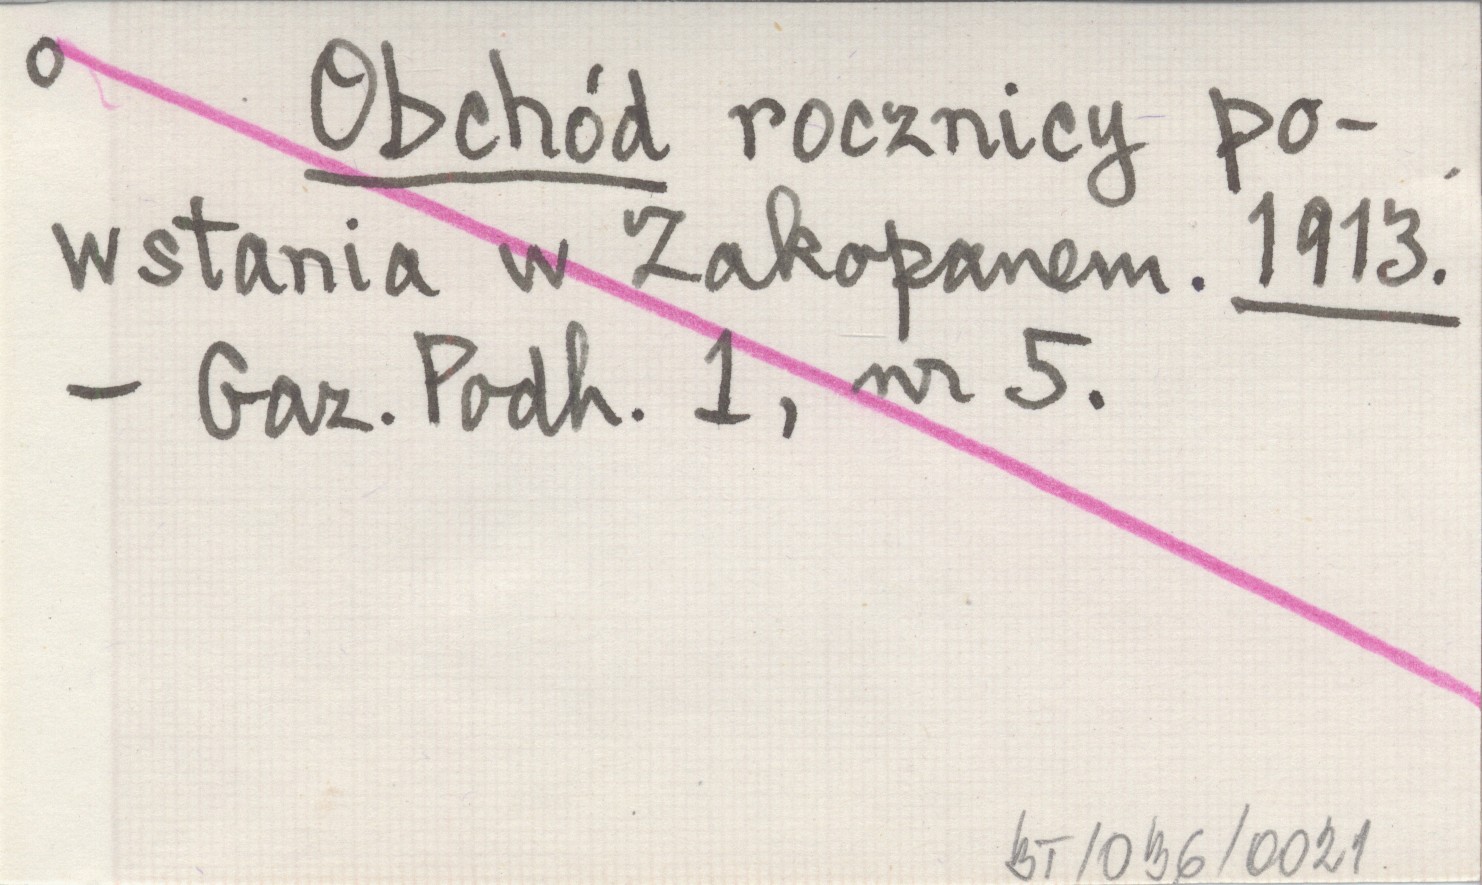 o Obchód rocznicy po-
wstania w Zakopanem. 1913.
- Gaz. Podh. 1, nr 5.
BT/036/0021